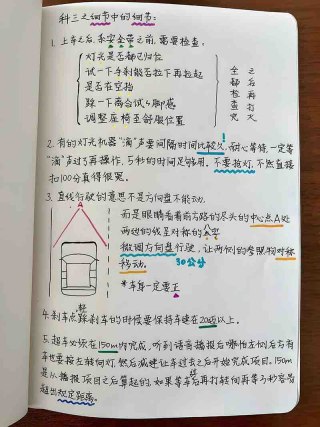 科三之细节中的细节:
1. 上车之后,系安全带之前,需要检查:
灯光是否都已归位
试一下手刹能否拉下再拉起
是否在空挡
踩一下离合试一下脚感
调整座椅至舒服位置
全之
部后
检再
查打
完火
2. 有的灯光机器“滴”声要间隔时间比较久,耐心等候,一定等
“滴”声过了再操作,5秒的时间足够用。不要抢灯,不然直接
扣100分真得很冤。
3. 直线行驶的意思不是方向盘不能动,
而是眼睛看着前方路的尽头的中心点A处
两边的线是对称的八字
微调方向盘行驶,让两侧的参照物对称
移动。 30公分
*车身一定要正
A
4. 刹车点 踩刹车的时候要保持车速在20码以上。
5. 超车必须在150m内完成,听到语音播报后哪怕左侧后方有
车也要打左转向灯,然后减速让车过去之后开始完成项目。150m
是从播报项目之后算起的,如果等车后再打转向再等3秒容易
超出规定距离。